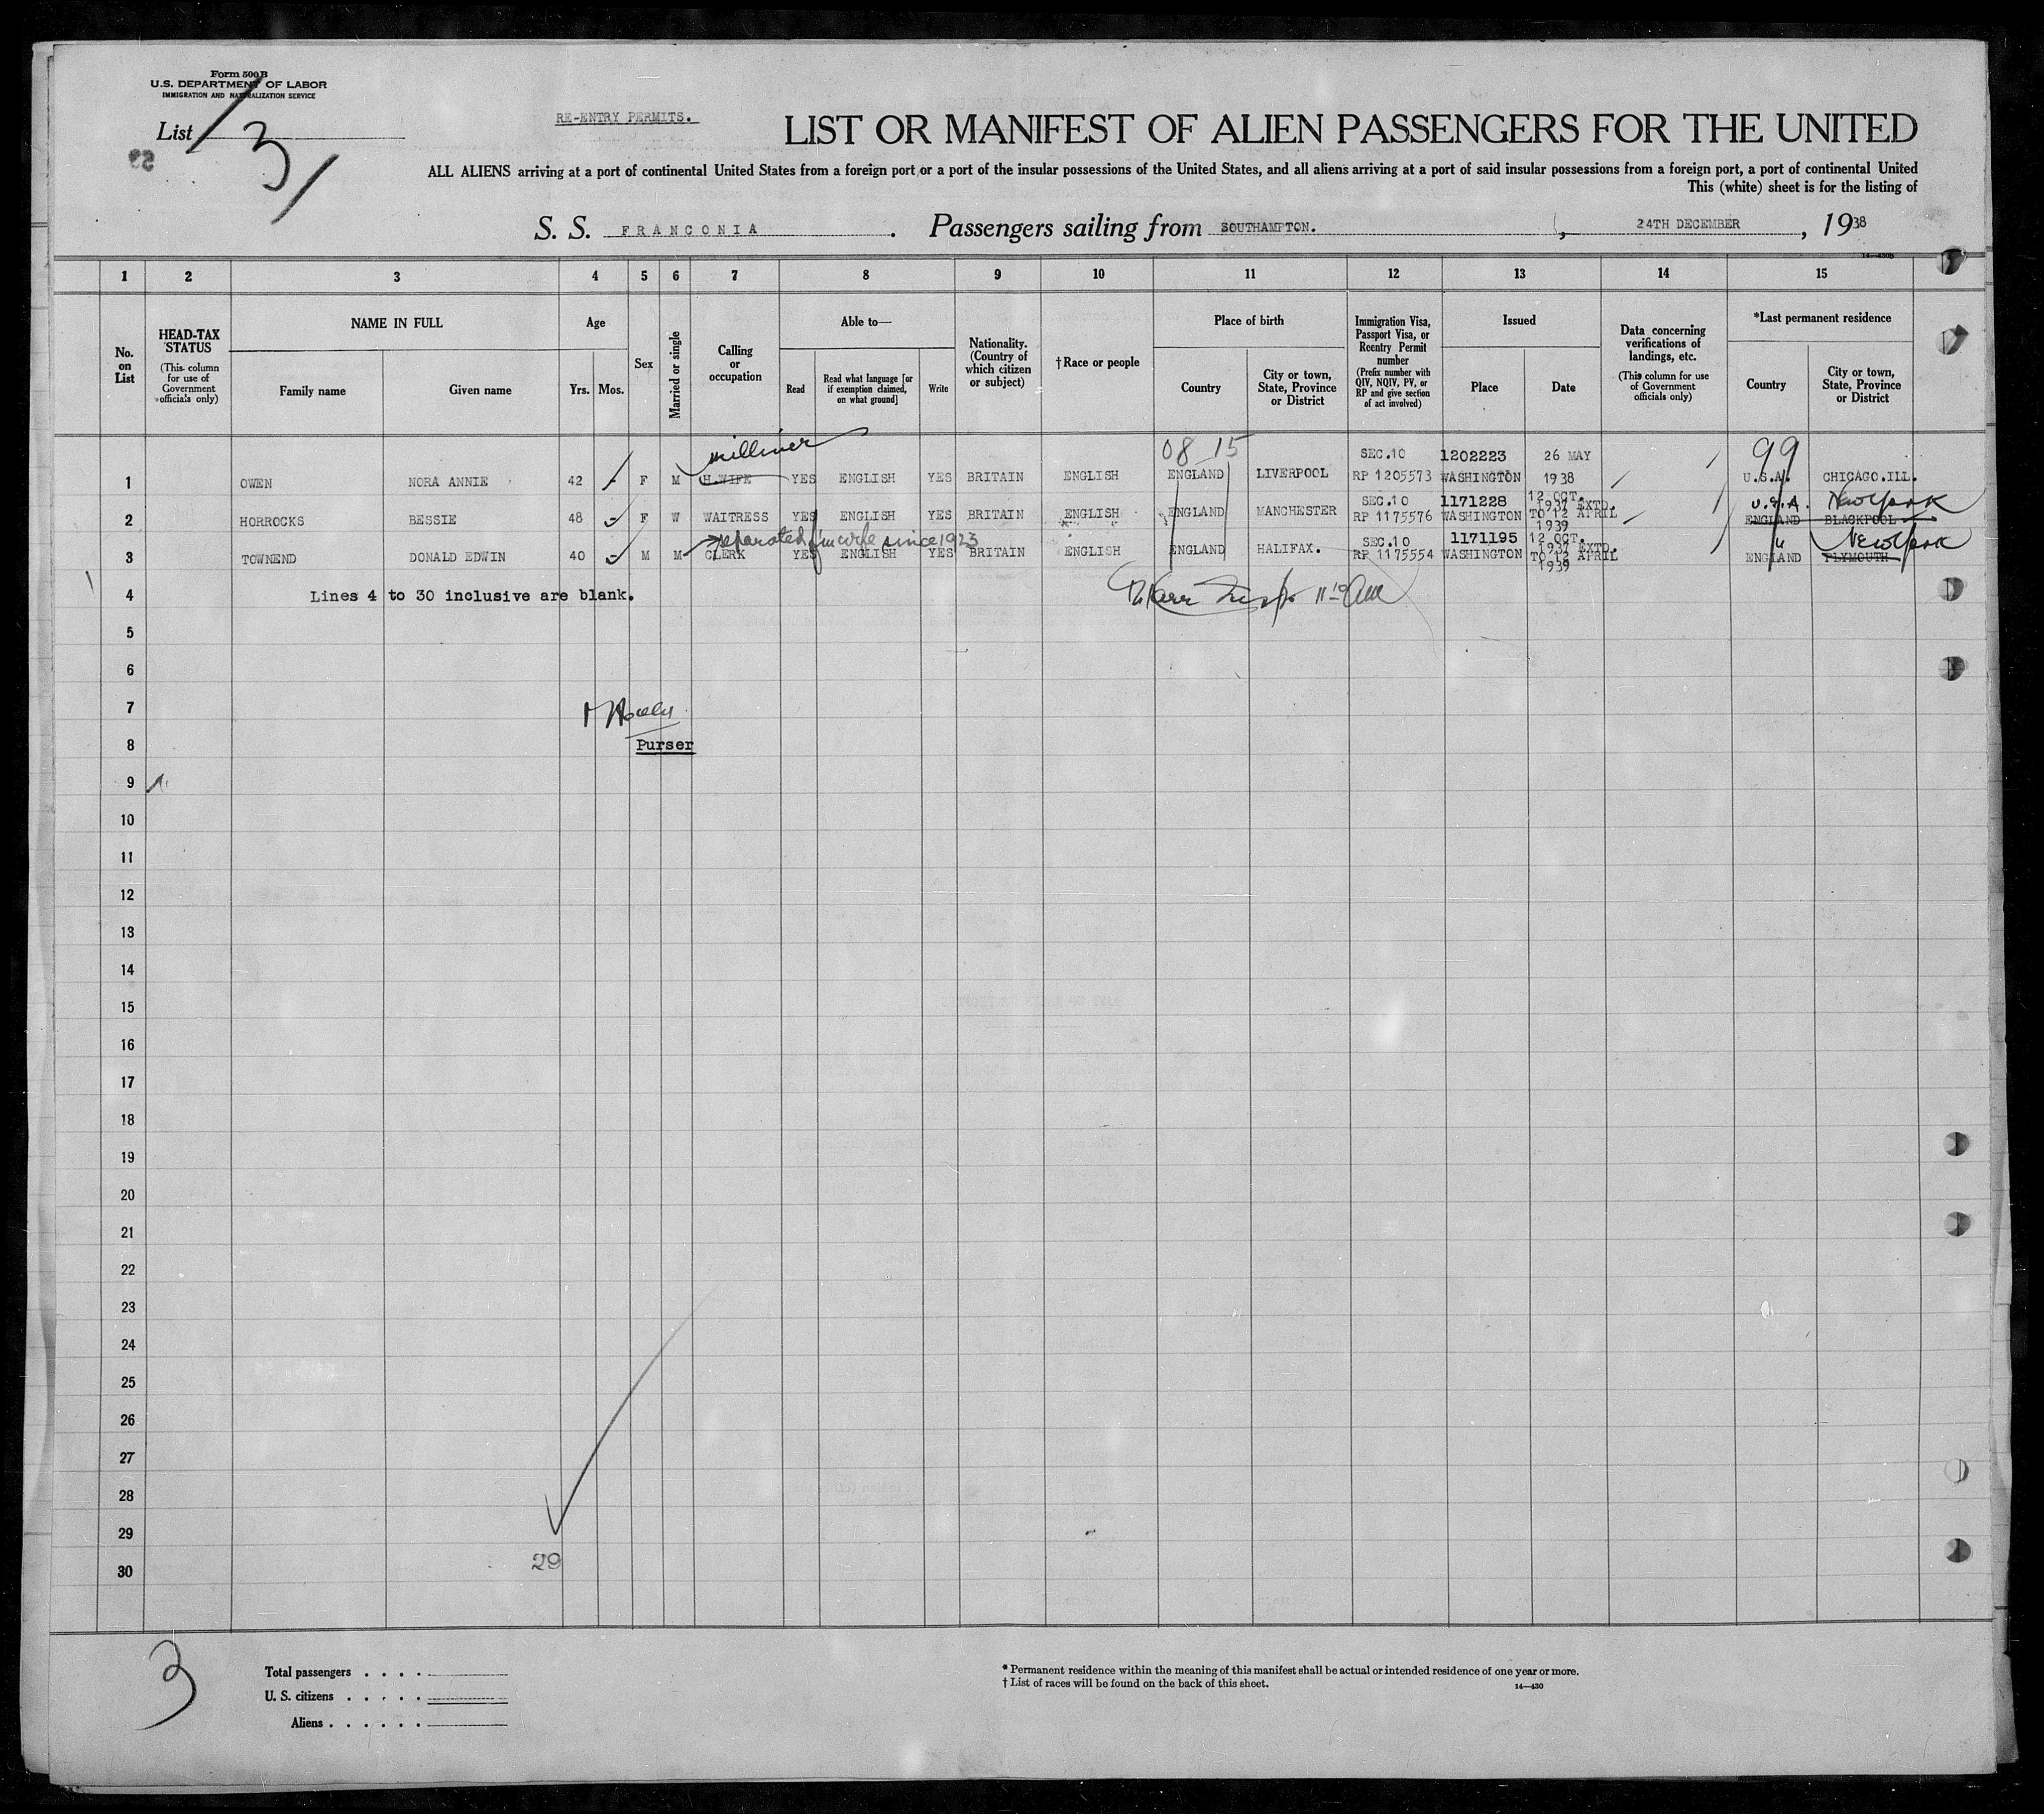 Form 500B
U.S. DEPARTMENT OF LABOR
IMMIGRATION AND NATURALIZATION SERVICE
List 3
RE-ENTRY PERMITS.
LIST OR MANIFEST OF ALIEN PASSENGERS FOR THE UNITED
ALL ALIENS arriving at a port of continental United States from a foreign port or a port of the insular possessions of the United States, and all aliens arriving at a port of said insular possessions from a foreign port, a port of continental United
This (white) sheet is for the listing of
S. S. FRANCONIA. Passengers sailing from SOUTHAMPTON. , 24TH DECEMBER, 1938
14—430B
1 2 3 4 5 6 7 8 9 10 11 12 13 14 15
No. on List
HEAD-TAX STATUS
(This column for use of Government officials only)
NAME IN FULL
Family name
Given name
Age
Yrs. Mos.
Sex
Married or single
Calling or occupation
Able to—
Read
Read what language [or if exemption claimed, on what ground]
Write
Nationality. (Country of which citizen or subject)
†Race or people
Place of birth
Country
City or town, State, Province or District
Immigration Visa, Passport Visa, or Reentry Permit number
(Prefix number with QIV, NQIV, PV, or RP and give section of act involved)
Issued
Place
Date
Data concerning verifications of landings, etc.
(This column for use of Government officials only)
*Last permanent residence
Country
City or town, State, Province or District
milliner 08 15 SEC.10 1202223 26 MAY 99
1 OWEN NORA ANNIE 42 - F M H.WIFE YES ENGLISH YES BRITAIN ENGLISH ENGLAND LIVERPOOL RP 1205573 WASHINGTON 1938 U.S.A. CHICAGO.ILL.
SEC.10 1171228 12 OCT. 1937 EXTD. U.S.A. New York
2 HORROCKS BESSIE 48 - F W WAITRESS YES ENGLISH YES BRITAIN ENGLISH ENGLAND MANCHESTER RP 1175576 WASHINGTON TO 12 APRIL 1939 ENGLAND BLACKPOOL
separated fm wife since 1923 SEC.10 1171195 12 OCT. 1937 EXTD. " New York
3 TOWNEND DONALD EDWIN 40 - M M CLERK YES ENGLISH YES BRITAIN ENGLISH ENGLAND HALIFAX. RP 1175554 WASHINGTON TO 12 APRIL 1939 ENGLAND PLYMOUTH
4 Lines 4 to 30 inclusive are blank.
5
6
7
8 Purser
9
10
11
12
13
14
15
16
17
18
19
20
21
22
23
24
25
26
27
28
29
29
30
3
Total passengers . . . .
U. S. citizens . . . . .
Aliens . . . . . .
* Permanent residence within the meaning of this manifest shall be actual or intended residence of one year or more.
† List of races will be found on the back of this sheet.
14—430